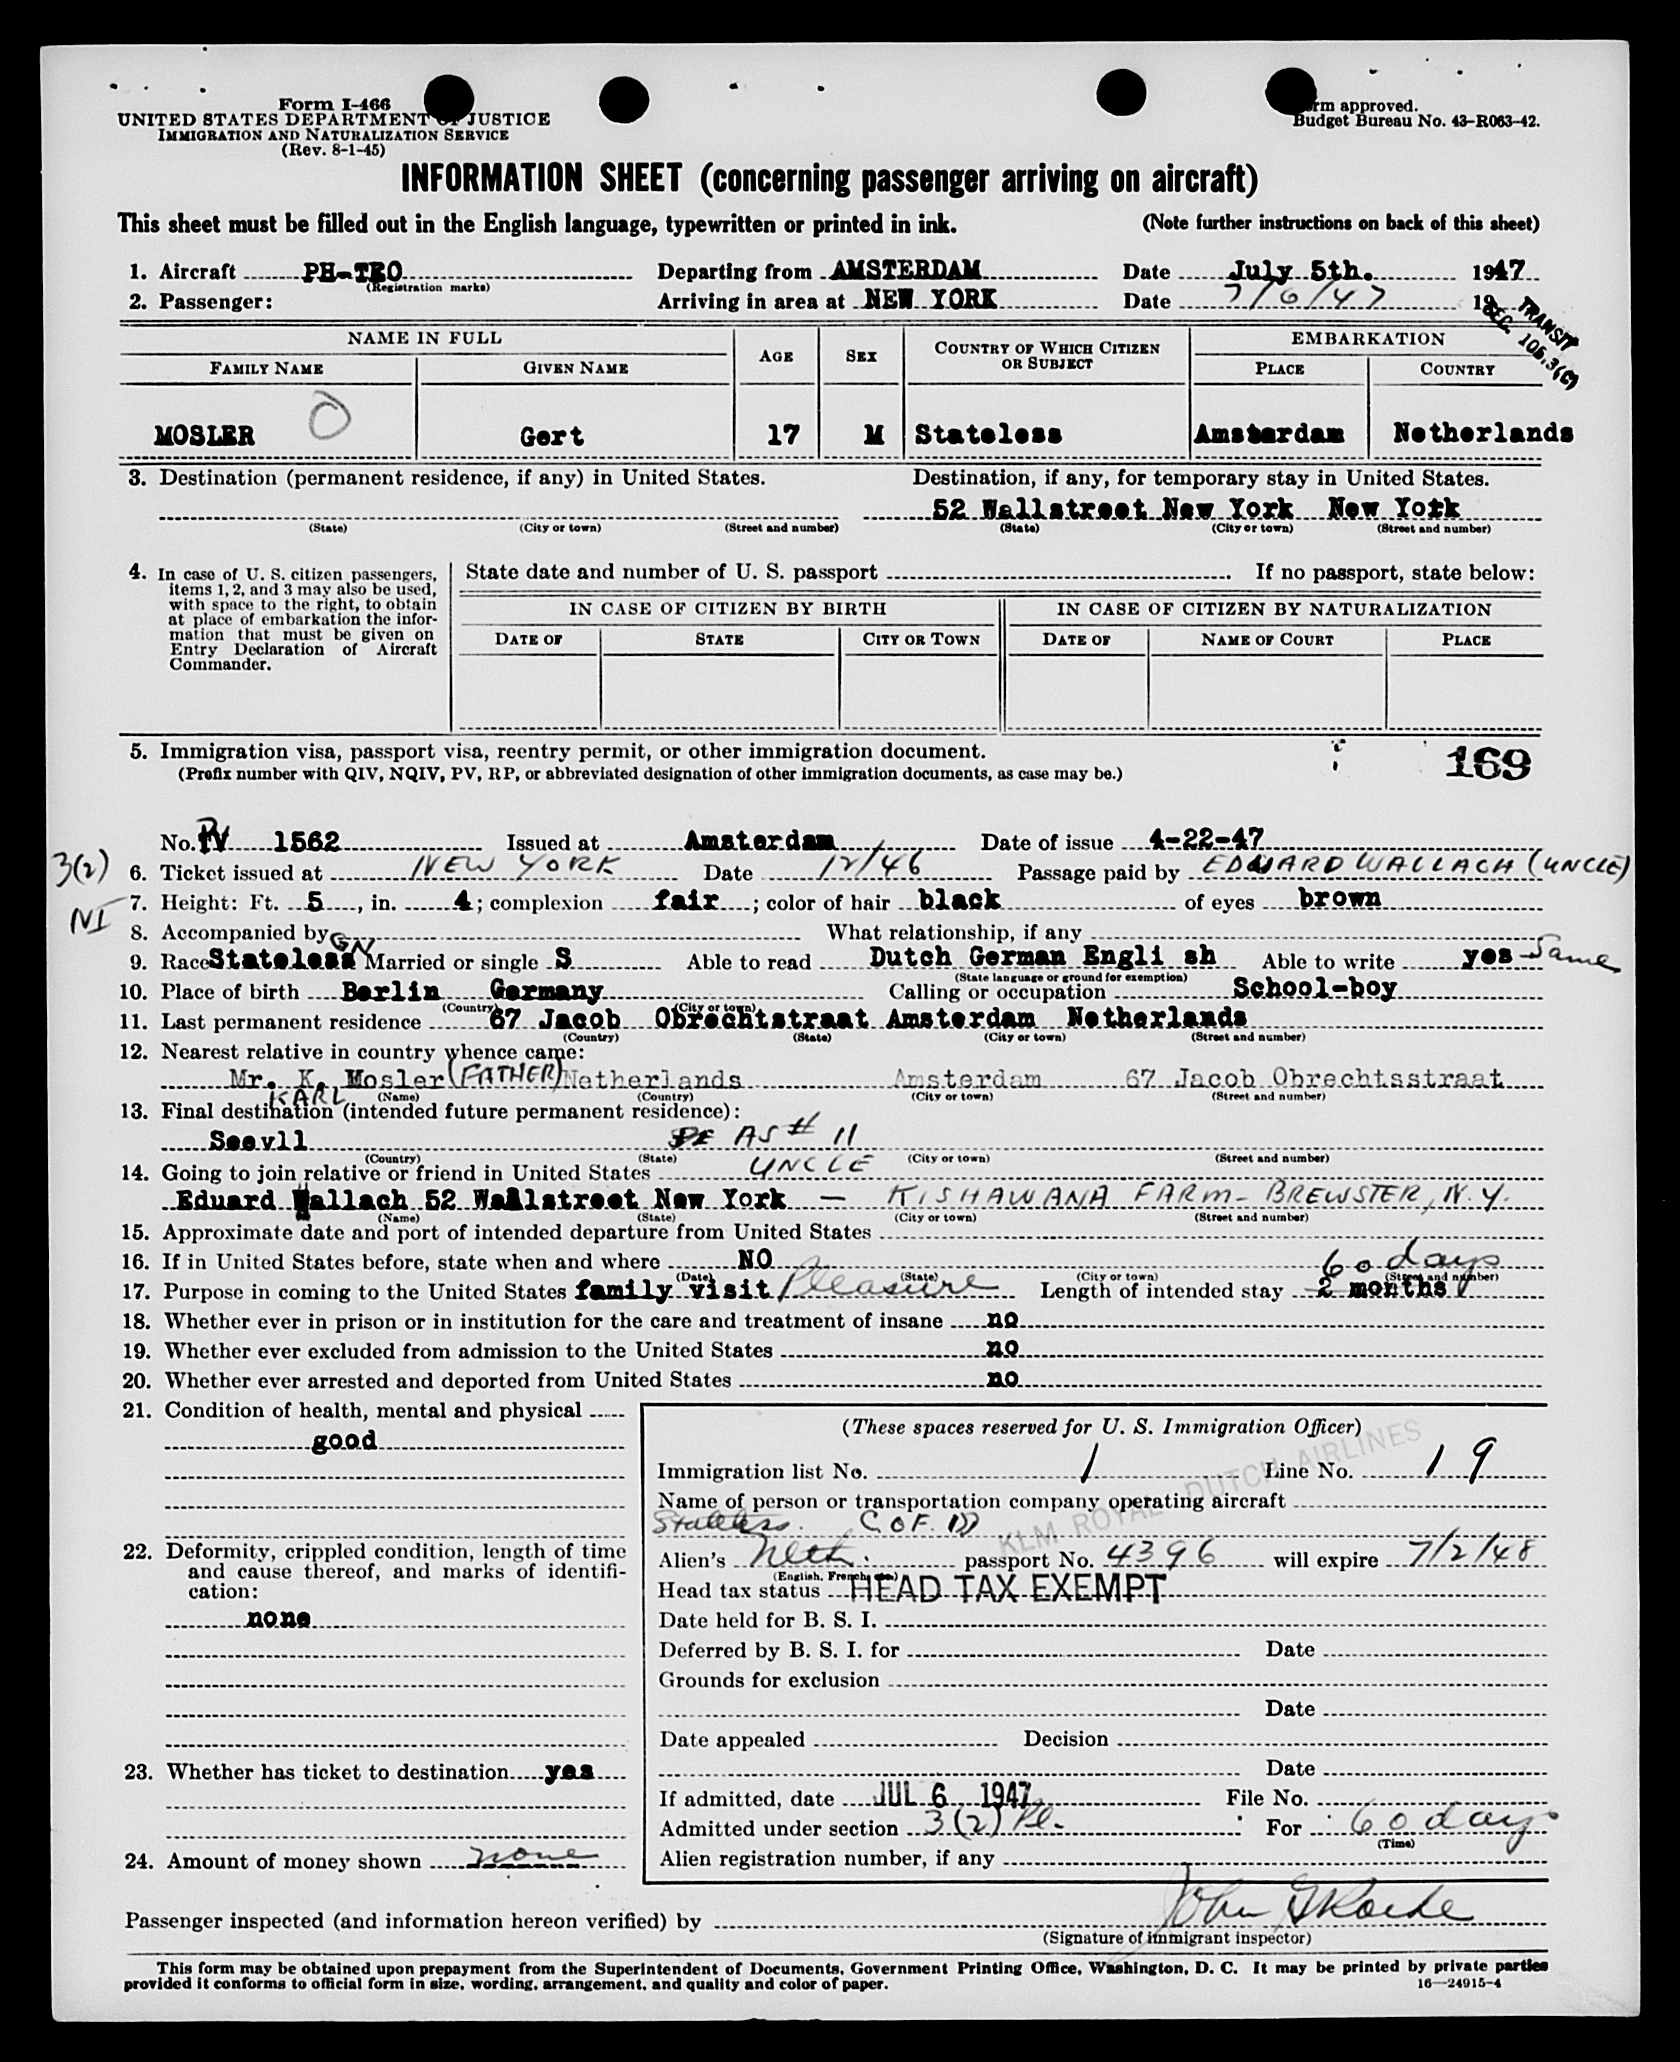 Form I-466
UNITED STATES DEPARTMENT OF JUSTICE
IMMIGRATION AND NATURALIZATION SERVICE
(Rev. 8-1-45)
Form approved.
Budget Bureau No. 43-R063-42.
INFORMATION SHEET (concerning passenger arriving on aircraft)
This sheet must be filled out in the English language, typewritten or printed in ink. (Note further instructions on back of this sheet)
1. Aircraft PH-TRO Departing from AMSTERDAM Date July 5th. 1947
(Registration marks)
2. Passenger: Arriving in area at NEW YORK Date 7/6/47 19
TRANSIT
SEC. 105.3(C)
NAME IN FULL AGE SEX COUNTRY OF WHICH CITIZEN OR SUBJECT EMBARKATION
FAMILY NAME GIVEN NAME PLACE COUNTRY
MOSLER O Gert 17 M Stateless Amsterdam Netherlands
3. Destination (permanent residence, if any) in United States. Destination, if any, for temporary stay in United States.
52 Wallstreet New York New York
(State) (City or town) (Street and number) (State) (City or town) (Street and number)
4. In case of U. S. citizen passengers, items 1, 2, and 3 may also be used, with space to the right, to obtain at place of embarkation the information that must be given on Entry Declaration of Aircraft Commander.
State date and number of U. S. passport If no passport, state below:
IN CASE OF CITIZEN BY BIRTH IN CASE OF CITIZEN BY NATURALIZATION
DATE OF STATE CITY OR TOWN DATE OF NAME OF COURT PLACE
5. Immigration visa, passport visa, reentry permit, or other immigration document. 169
(Prefix number with QIV, NQIV, PV, RP, or abbreviated designation of other immigration documents, as case may be.)
No. PV 1562 Issued at Amsterdam Date of issue 4-22-47
3(2) 6. Ticket issued at NEW YORK Date 12/46 Passage paid by EDWARD WALLACH (UNCLE)
NI 7. Height: Ft. 5, in. 4; complexion fair; color of hair black of eyes brown
8. Accompanied by What relationship, if any
9. Race Stateless GN Married or single S Able to read Dutch German Engli sh Able to write yes Same
(State language or ground for exemption)
10. Place of birth Berlin Germany Calling or occupation School-boy
(Country) (City or town)
11. Last permanent residence 67 Jacob Obrechtstraat Amsterdam Netherlands
(Country) (State) (City or town) (Street and number)
12. Nearest relative in country whence came:
Mr. K. Mosler (FATHER) Netherlands Amsterdam 67 Jacob Obrechtsstraat
KARL (Name) (Country) (City or town) (Street and number)
13. Final destination (intended future permanent residence):
Seevll AS # 11
(Country) (State) (City or town) (Street and number)
14. Going to join relative or friend in United States UNCLE
Eduard Wallach 52 Wallstreet New York — KISHAWANA FARM - BREWSTER, N.Y.
(Name) (State) (City or town) (Street and number)
15. Approximate date and port of intended departure from United States
16. If in United States before, state when and where NO 60 days
(Date) (State) (City or town) (Street and number)
17. Purpose in coming to the United States family visit Pleasure Length of intended stay 2 months
18. Whether ever in prison or in institution for the care and treatment of insane no
19. Whether ever excluded from admission to the United States no
20. Whether ever arrested and deported from United States no
21. Condition of health, mental and physical
good
22. Deformity, crippled condition, length of time and cause thereof, and marks of identification:
none
23. Whether has ticket to destination yes
24. Amount of money shown none
(These spaces reserved for U. S. Immigration Officer)
Immigration list No. 1 Line No. 19
Name of person or transportation company operating aircraft
KLM ROYAL DUTCH AIRLINES
Stateless. C. OF. ID
Alien's Neth. passport No. 4396 will expire 7/2/48
(English, French, etc.)
Head tax status HEAD TAX EXEMPT
Date held for B. S. I.
Deferred by B. S. I. for Date
Grounds for exclusion
Date
Date appealed Decision
Date
If admitted, date JUL 6 1947 File No.
Admitted under section 3(2) Pl. For 60 days
(Time)
Alien registration number, if any
Passenger inspected (and information hereon verified) by
(Signature of immigrant inspector)
This form may be obtained upon prepayment from the Superintendent of Documents, Government Printing Office, Washington, D. C. It may be printed by private parties
provided it conforms to official form in size, wording, arrangement, and quality and color of paper. 16—24915-4